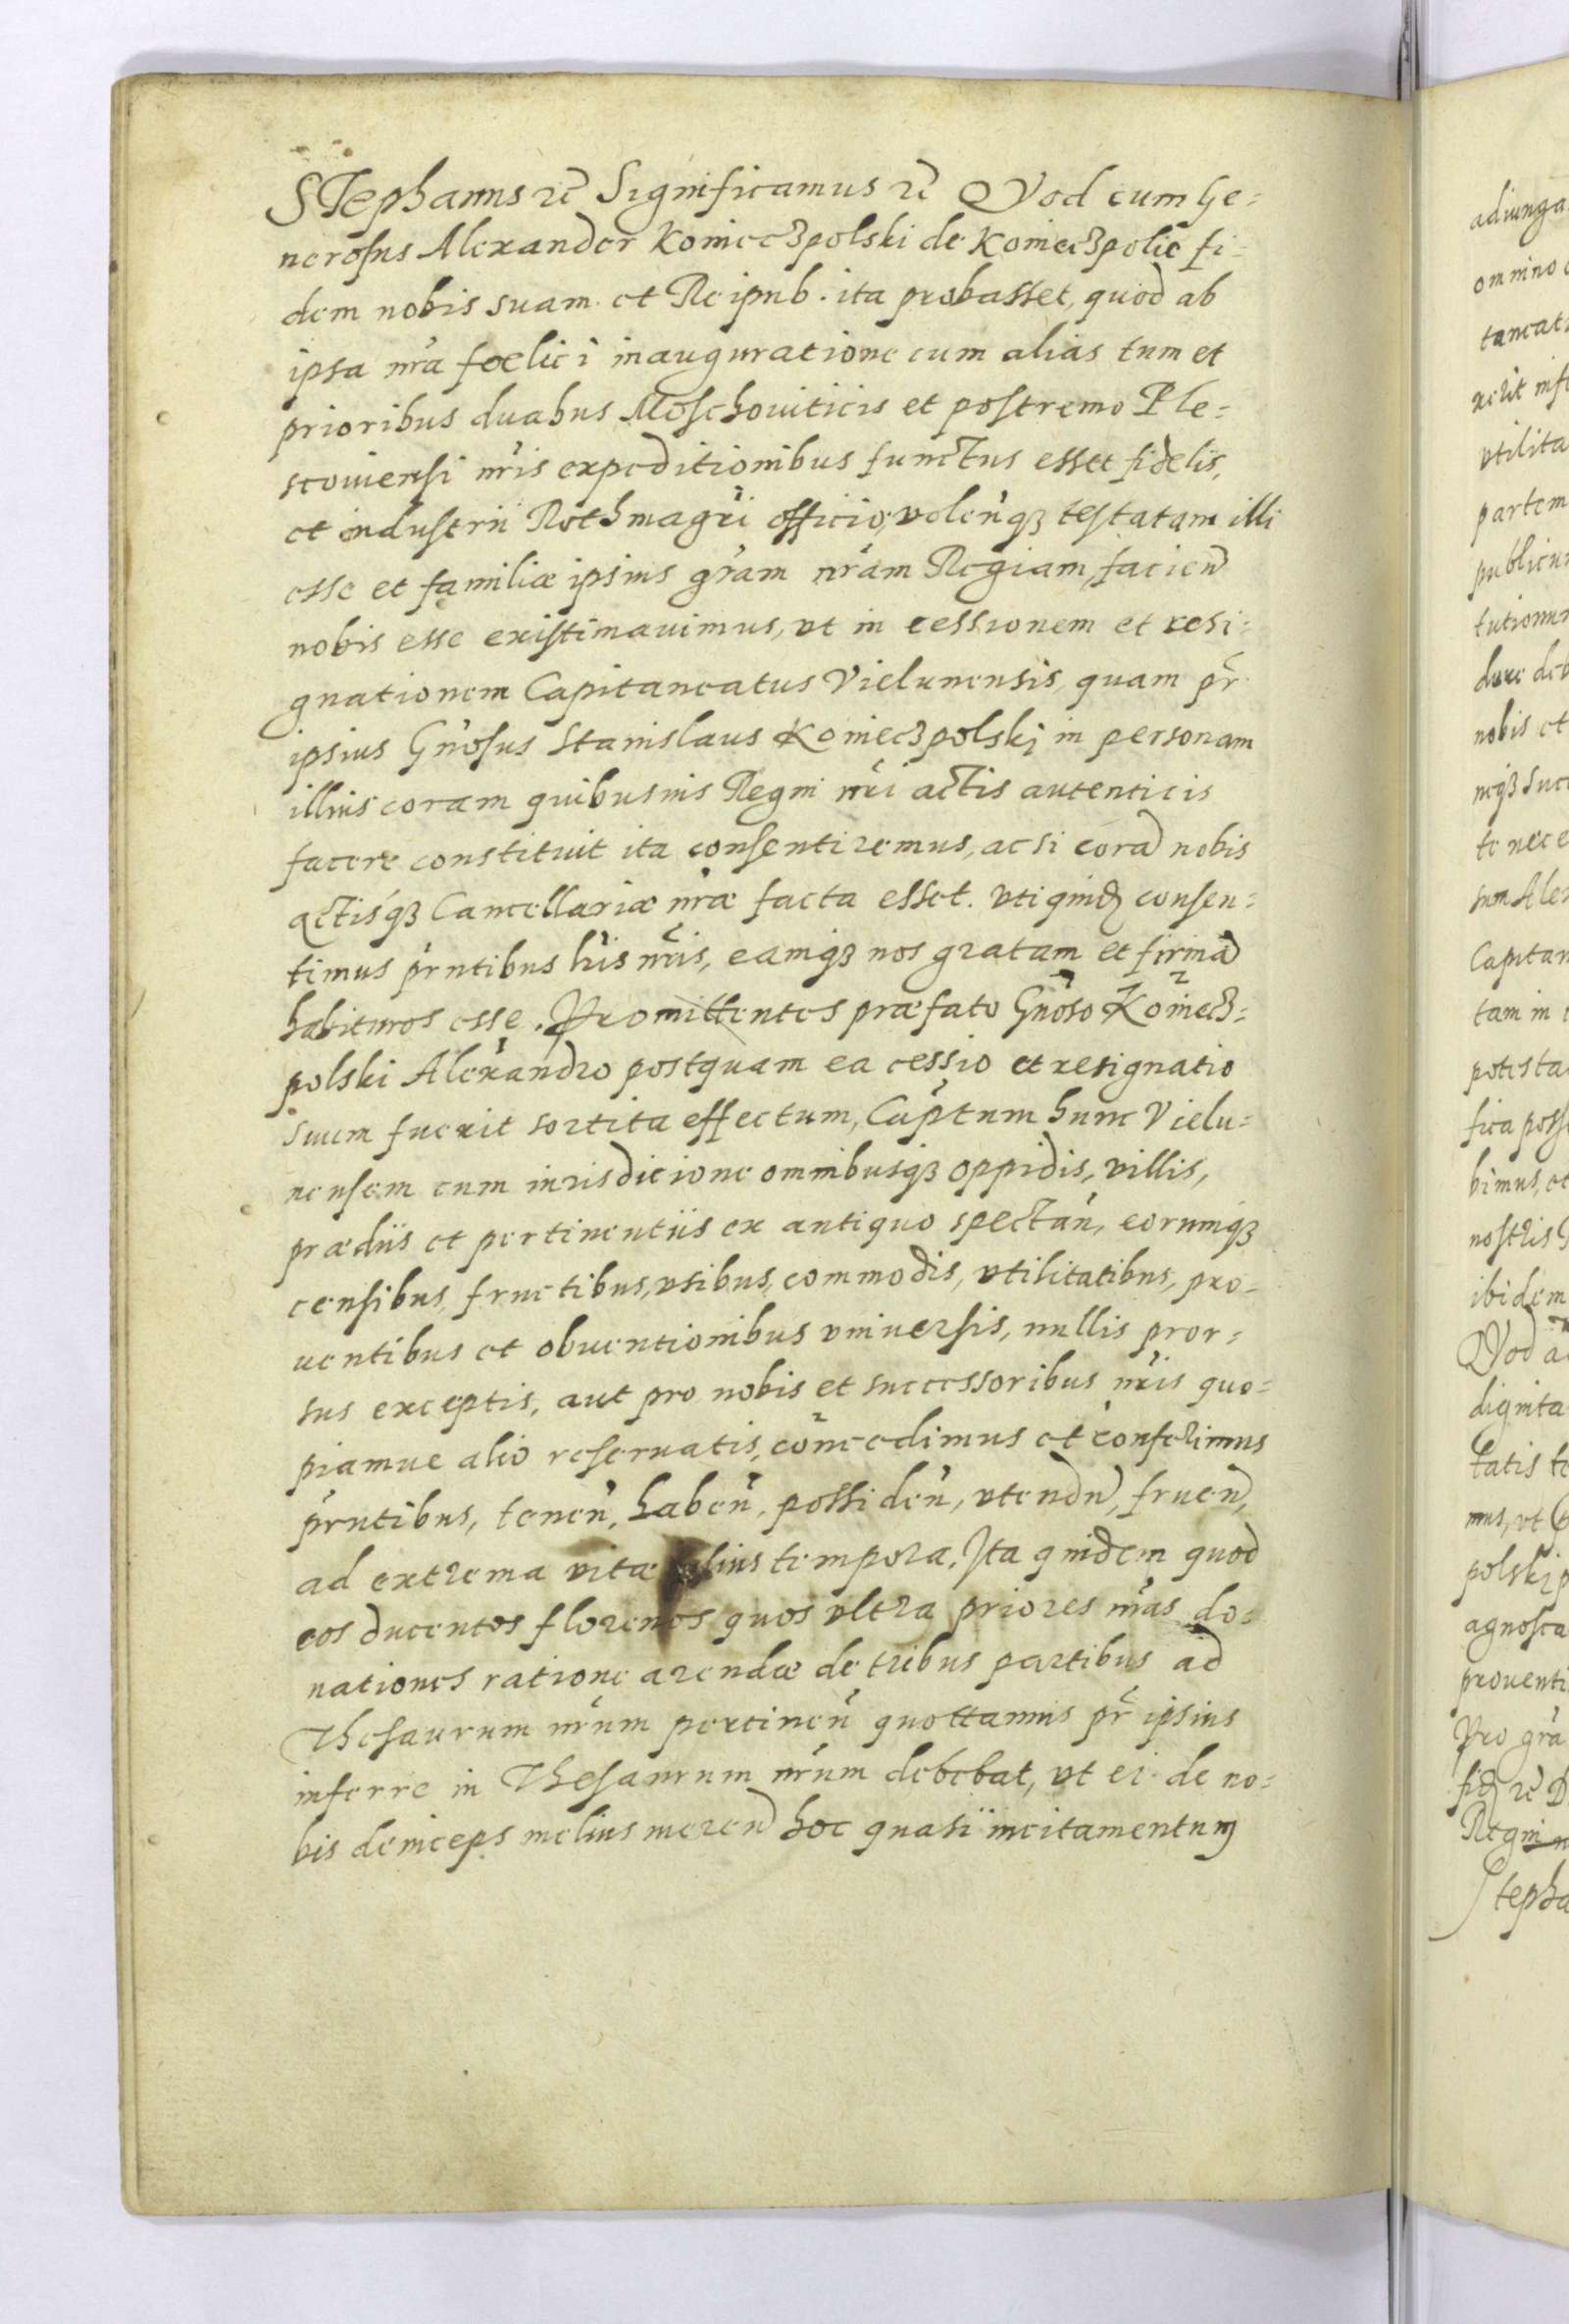 Stephanus rc̃ Significamus rc̃ Quod cum Ge=
nerosus Alexander Konieczpolski de Koniecpolie fi=
dem nobis suam et Reipub. ita probasset, quod ab
ipsa nr̃a foelici inauguratione cum alias tum et
prioribus duabus Moschouiticis et postremo Ple=
scouiensi nr̃is expeditionibus functus esset fidelis,
et industrii Rothmagr̃i officio, volen̄q3 testatam illi
esse et familiæ ipsius gr̃am nr̃am Regiam, facien̄
nobis esse existimauimus, vt in cessionem et resi=
gnationem Capitaneatus Vielunensis, quam pr̃
ipsius Gñosus Stanislaus Konieczpolski in personam
illius coram quibusuis Regni nr̃i actis autenticis
facere constituit ita consentiremus, ac si corã nobis
actisq3 Cancellariæ nr̃æ facta esset. vti quid consen=
timus pr̃ntibus lr̃is nr̃is, eamq3 nos gratam et firmã
habituros esse. Promittentes præfato Gñoso Koniecz=
polski Alexandro postquam ea cessio et resignatio
suum fuerit sortita effectum, Cap̃tum hunc Vielu=
nensem cum iurisdicione omnibusq3 oppidis, villis,
prædiis et pertinentiis ex antiquo spectan̄, eorumq3
censibus, fructibus, vsibus, commodis, vtilitatibus, pro=
uentibus et obuentionibus vniuersis, nullis pror=
sus exceptis, aut pro nobis et successoribus nr̃is quo=
piamue alio reseruatis, concedimus et conferimus
pr̃ntibus, tenen̄, haben̄, possiden̄, vtendn̄, fruen̄,
ad extrema vitæ illius tempora. Ita quidem quod
eos ducentos florenos quos vltra priores nr̃as do=
nationes ratione arendæ de tribus partibus ad
Thesaurum nr̃um pertinen̄ quottannis pr̃ ipsius
inferre in Thesaurum nr̃um debebat, vt ei de no=
bis deinceps melius meren̄ hoc quasi incitamentum
adiunga
omnino
taneat
xerit
vtilita
partem
publicu
tutionu
dare deb
nobis et
neq3 succ
te nece
sum Ale
Capitan
tam in
potesta
fica posse
bimus, et
nostris
ibidem
Quod a
dignita
tatis te
mus, vt
polski p
agnosca
prouenti
Pro gr̃a
fid rc̃ D
Regni n
Stepha